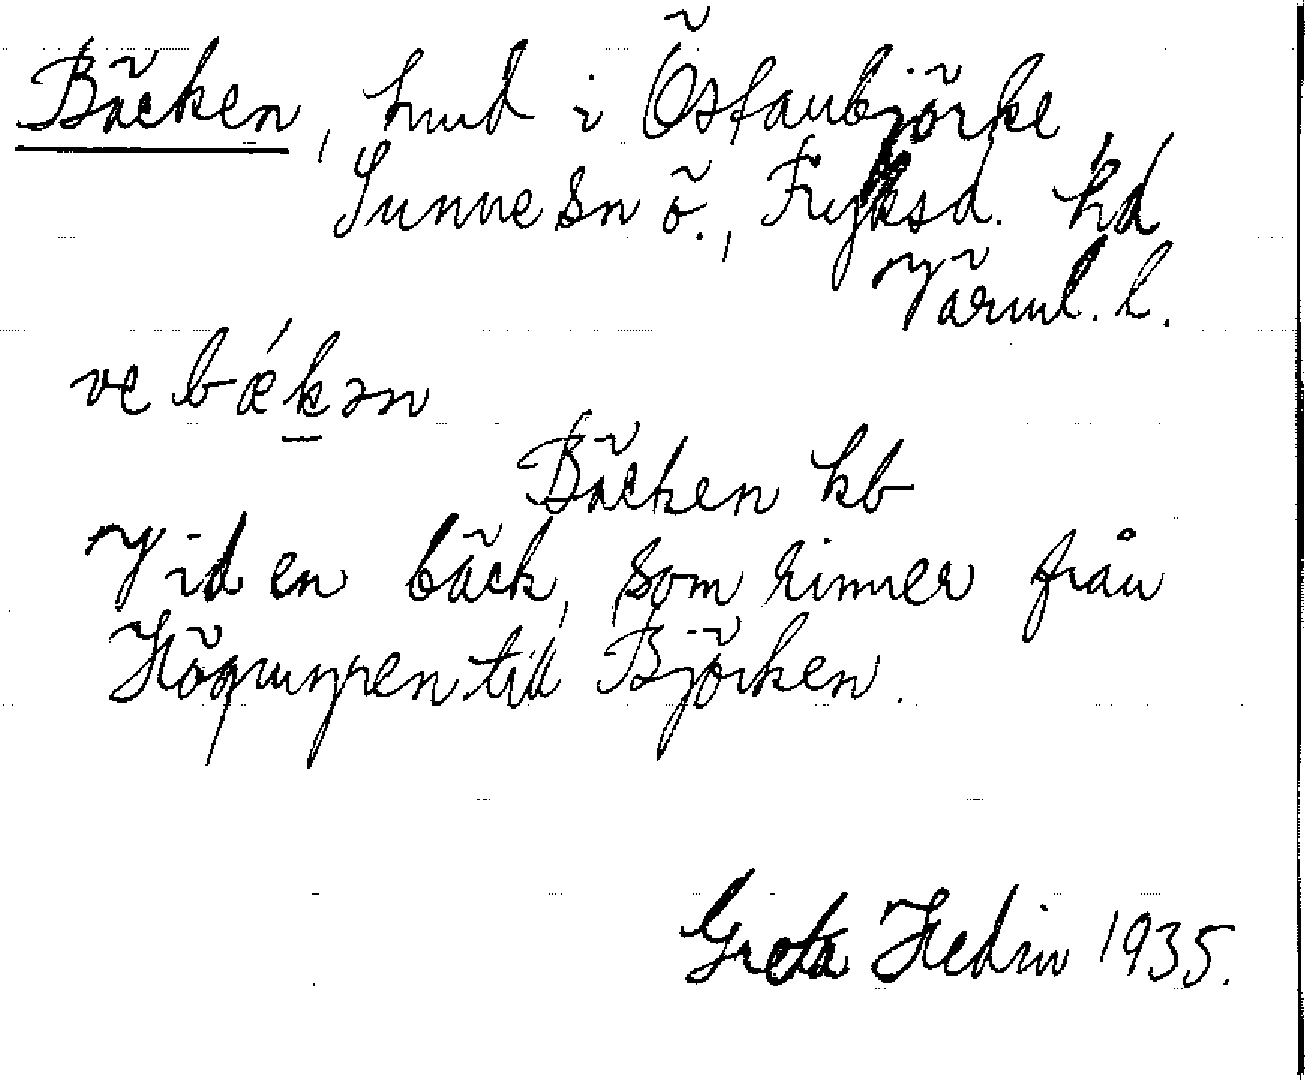 Bäcken, hmd i Östanbjörke
Sunne sn ö., Fryksd. hd
Värml. l.
ve bǽkən
Bäcken kb
Vid en bäck, som rinner från
Högrumpen till Björken.
Greta Hedin 1935.